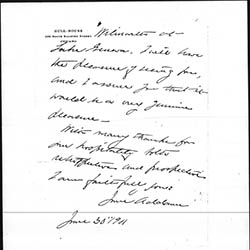 HULL-HOUSE
335 SOUTH HALSTED STREET
CHICAGO
at
Lake Geneva. I will have
the pleasure of seeing you,
and I assure you that it
would be a very genuine
pleasure —
With many thanks for
your hospitality both
retrospective and prospective
I am faithfully yours
Jane Addams
June 30" 1911